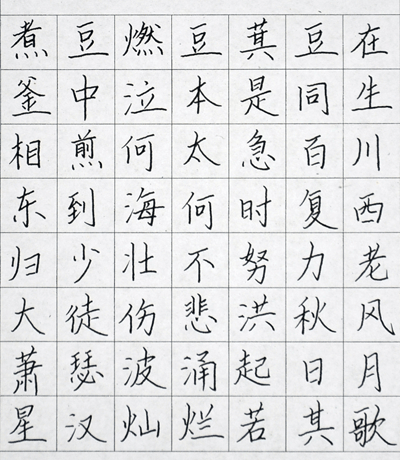 煮豆燃豆萁豆在
釜中泣本是同生
相煎何太急百川
东到海何时复西
归少壮不努力老
大徒伤悲洪秋风
萧瑟波涌起日月
星汉灿烂若其歌